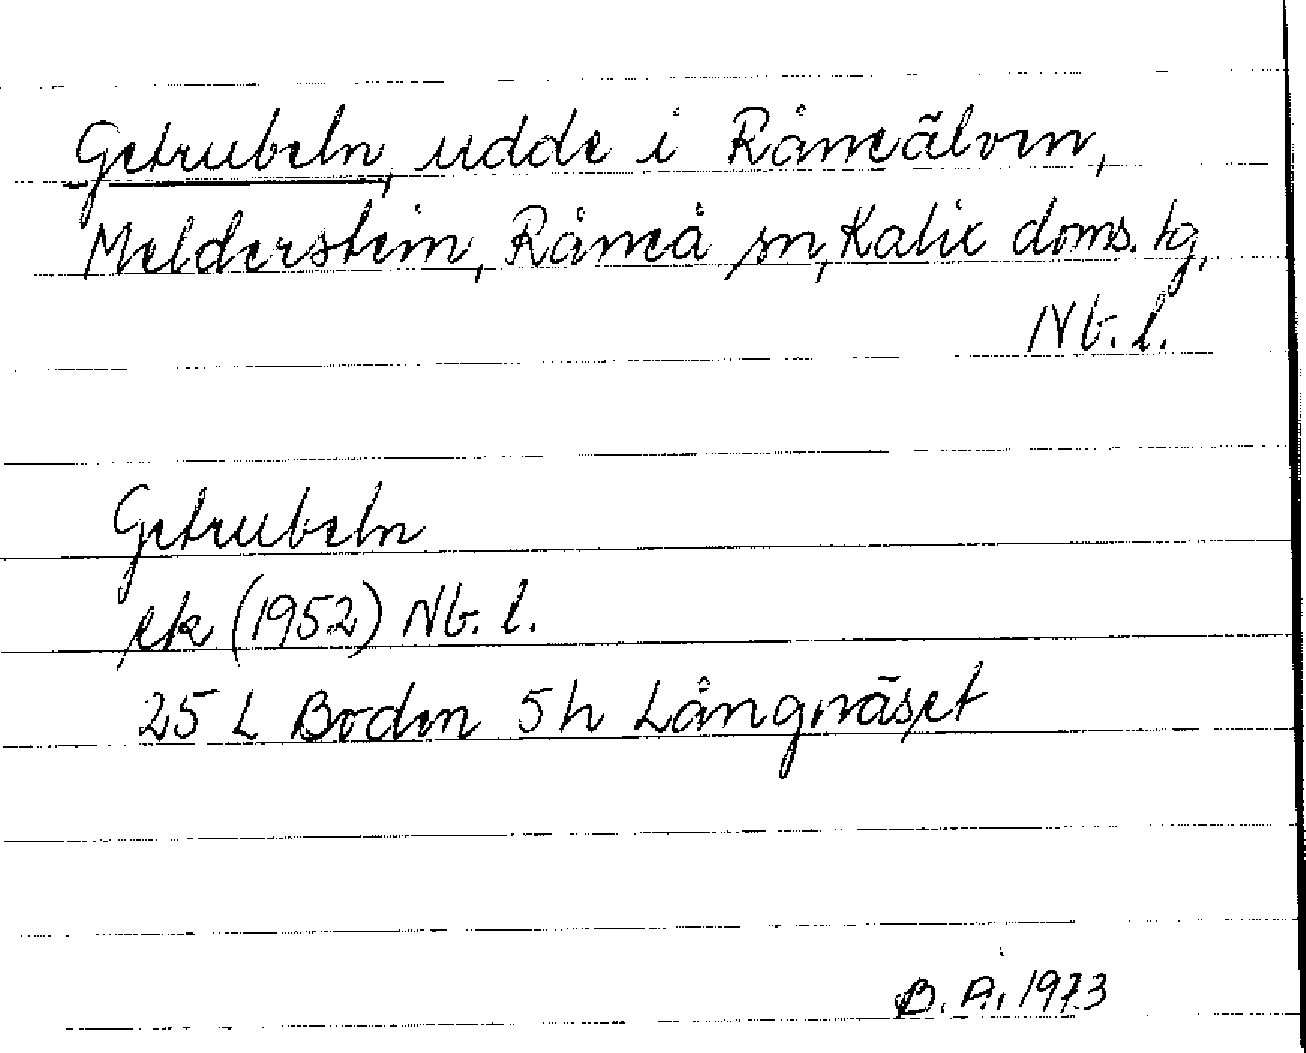 Getrubeln, udde i Råneälven,
Melderstein, Råneå sn, Kalix doms. tg,
Nb. l.
Getrubeln
ek (1952) Nb. l.
25 L Boden 5h Långnäset
B. A. 1973